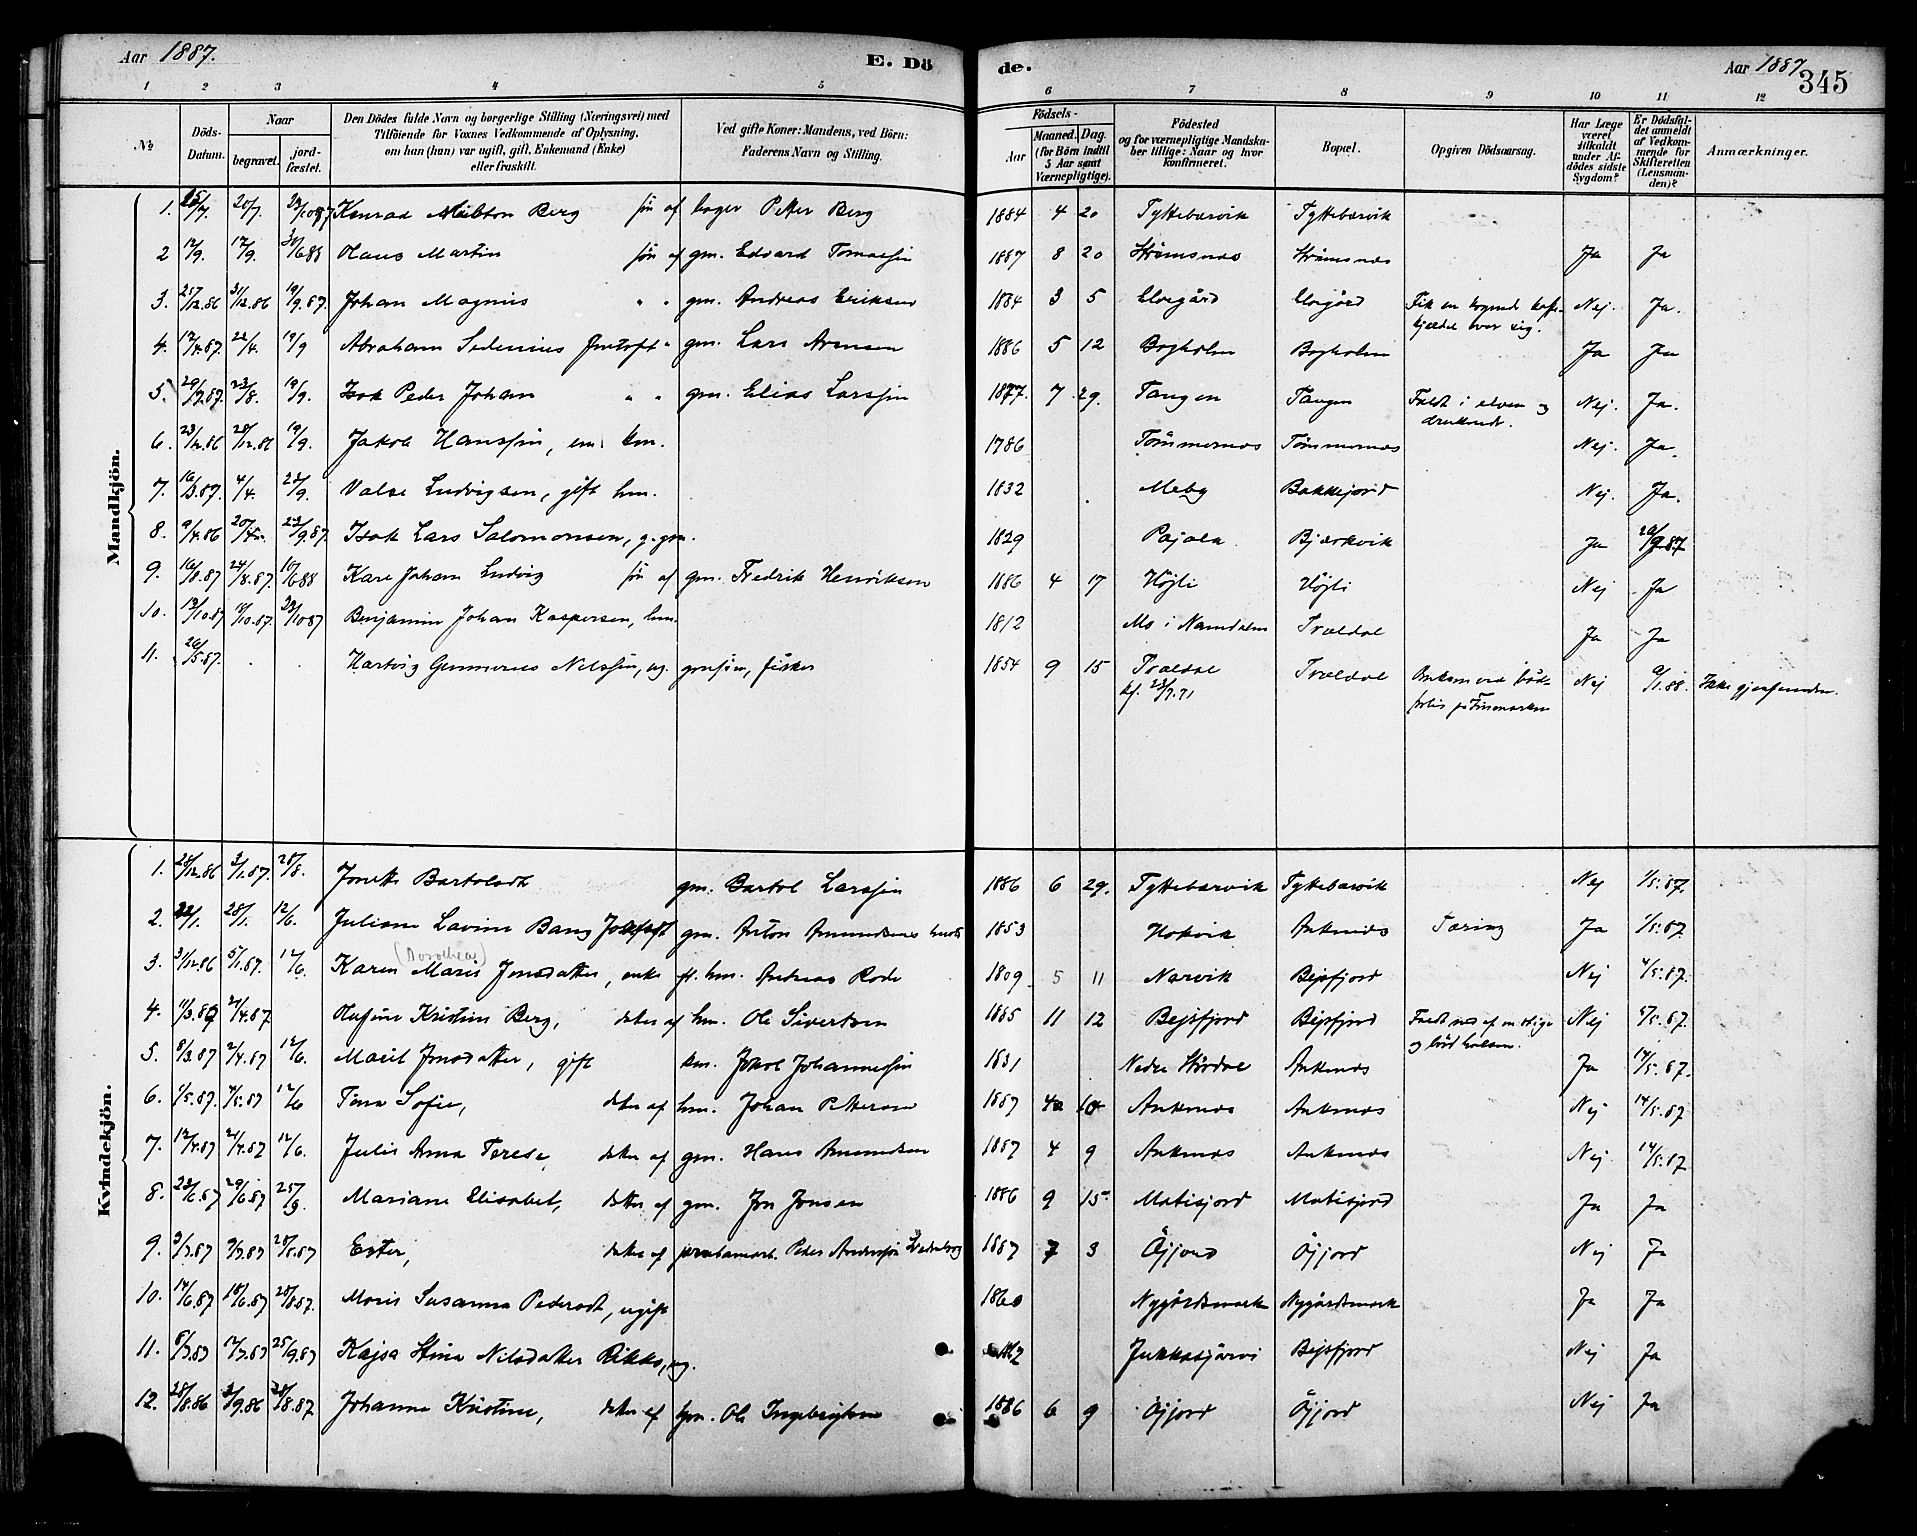 Aar 1887.
E. Dö
de.
Aar 1887
345
1 2 3 4 5
6 7 8 9 10 11 12
№
Döds-Datum.
Naar
begravet.
jord-fæstet.
Den Dödes fulde Navn og borgerlige Stilling (Næringsvei) med
Tilföiende for Voxnes Vedkommende af Oplysning,
om han (hun) var ugift, gift, Enkemand (Enke)
eller fraskilt.
Ved gifte Koner: Mandens, ved Börn:
Faderens Navn og Stilling.
Födsels-
Aar
Maaned. Dag.
(for Börn indtil
5 Aar samt
Værnepligtige).
Födested
og for værnepligtige Mandska-
ber tillige: Naar og hvor
konfirmeret.
Bopæl.
Opgiven Dödsaarsag.
Har Læge
været
tilkaldt
under Af-
dödes sidste
Sygdom?
Er Dödsfal-
det anmeldt
af Vedkom-
mende for
Skifteretten
(Lensman-
den)?
Anmærkninger.
Mandkjön.
1. 20/7. Konrad Berg sön af Petter Berg 1884 4 20 Tyttebærvik Tyttebærvik
2 12/9. 17/9. 30/6 88 Hans Martin sön af gm. Edvard Tomassen 1887 8 20 Strömsnes Strömsnes Ja Ja
3. 25/12.86 31/12.86 19/9.87. Johan Magnus " " gm. Andreas Eriksen 1884 3 5 Elvegård Elvegård Fik en kogende kaffe-
kjedel over sig. Nej. Ja.
4. 17/4.87. 22/4. 19/9 Abraham Sedenius " gm. Lars Arnesen 1886 5 12 Bogholm Bogholm Ja Ja
5. 29/7.87. 23/8. 19/9. Isak Peder Johan " " gm. Elias Larssen 1877. 7. 29. Tangen Tangen Faldt i elven og
druknede. Nej. Ja.
6. 23/12.86 28/12.86 19/9. Jakob Hanssen, em. 1786 Tömmernes Tömmernes Nej. Ja.
7. 16/3.87. 4/4. 22/9. Ludvigsen, gift hm. 1832 Meby Bakkejord Nej. Ja.
8. 9/4.86 23/9.87. Isak Lars Salomonsen, g. gm. 1829 Pajala Bjerkvik Ja 20/9.87
9. 16/8.87 24/8.87. 10/6 88 Kare Johan Ludvig sön af gm. Fredrik Henriksen 1886 4 17 Höjli Höjli Nej Ja
10. 13/10.87 18/10.87. 23/10 87 Benjamin Johan Kaspersen, hm. 1812 Mo i Namdalen Trældal Ja Ja
11. 26/5.87. Hartvig Gunnerius Nilssen, ug. gmsön, fisker 1854 9 15 Trældal
kf. 23/7.71 Trældal Nej 9/1.88. Ikke gjenfunden.
Kvindekjön.
1. 28/12.86 3/1.87. 28/8. Jonette Bartolsdt gm. Bartol Larssen 1886 6 29. Tyttebærvik Tyttebærvik Nej 1/5.87.
2. 22/1. 28/1. 12/6. Juliane Lavina Bang gm. Anton Amundsens hustr 1853 Hokvik Ankenes Tæring Ja 1/5.87.
3. 31/12.86 5/1.87. 12/6. Karen (Dorothea) Marie Jonsdatter, enke ft. hm. Andreas Rode 1809 5 11 Narvik Bejsfjord Nej 4/5.87.
4. 11/3.87 2/4.87 Olufine Kristine Berg, datter af hm. Ole Sivertsen 1885 11 12 Bejsfjord Bejsfjord Faldt ned af en stige Nej 5/5.87.
5. 8/3.87 2/4.87 12/6. Marit Jonsdatter, gift km. Jakob Johannessen 1831 Nedre Stördal Ankenes Ja 14/5.87.
6. 1/5.87. 7/5.87 12/6 Tina Sofie, datter af hm. Johan Pettersen 1887 Ankenes Ankenes Nej 14/5.87
7. 12/4.87 21/4.87 12/6. Julie Anna Terese, datter af gm. Hans Amundsen 1887 4 9 Ankenes Ankenes Nej 14/5.87
8. 22/6.87 29/6.87 25/9 Mariane Elisabet, datter af gm. Jon Jonsen 1886 9 15 Matisjord Matisjord Ja Ja
9. 3/7.87 9/7.87 28/8.87 Ester, datter af jernbanearb. Peter Anderssen 1887 7 3 Öjjord Öjjord Nej Ja
10. 14/6.87 18/6.87 28/8.87. Maria Susanna Pedersdt, ugift 1860 Nygårdsmark Nygårdsmark Ja Ja
11. 6/7.87 12/7.87 25/9.87 Kajsa Stina Nilsdatter Rikko, ug. Jukkasjärvi Bejsfjord Nej Ja
12. 28/8.86 3/9.86 28/8.87 Johanna Kristine, datter af gm. Ole Ingebrigtsen 1886 6 9 Öjjord Öjjord Nej Ja